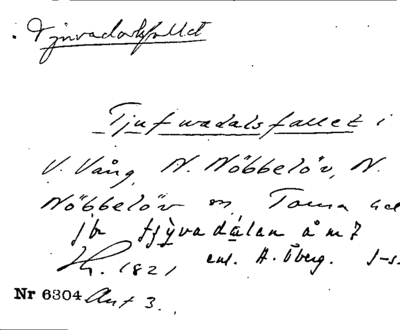 Tjuvadalsfallet
Tjufvadalsfallet i
V. Vång, N. Nöbbelöv, N.
Nöbbelöv sn, Torna hd
jfr tjỳvadálan å m 7
enl. H. Öberg.
1821
Nr 6304 Ant 3.